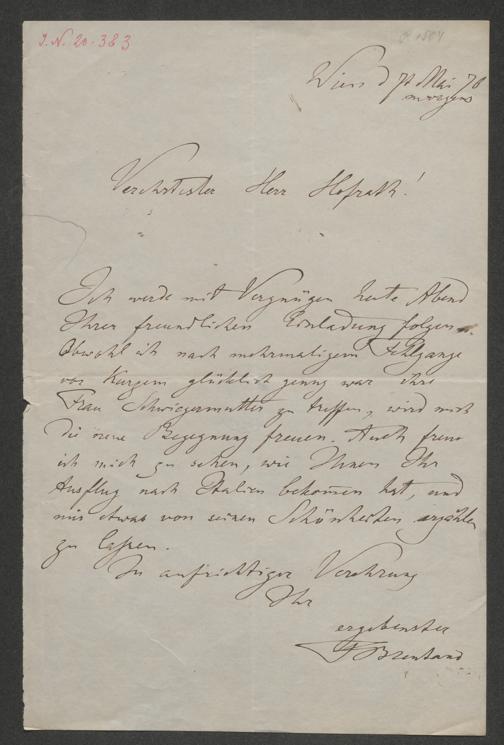 J. N. 20.383
Wien d 7t Mai 76
morgens
Verehrtester Herr Hofrath!
Ich werde mit Vergnügen heute Abend
Ihrer freundlichen Einladung folgen.
Obwohl ich nach mehrmaligem Fehlgange
vor Kurzem glücklich genug war ihre
Frau Schwiegermutter zu treffen, wird mich
die neue Begegnung freuen. Auch freue
ich mich zu sehen, wie Ihnen Ihr
Ausflug nach Italien bekom̄en hat, und
mir etwas von seinen Schönheiten erzählen
zu lassen.
In aufrichtiger Verehrung
Ihr
ergebenster
F Brentano